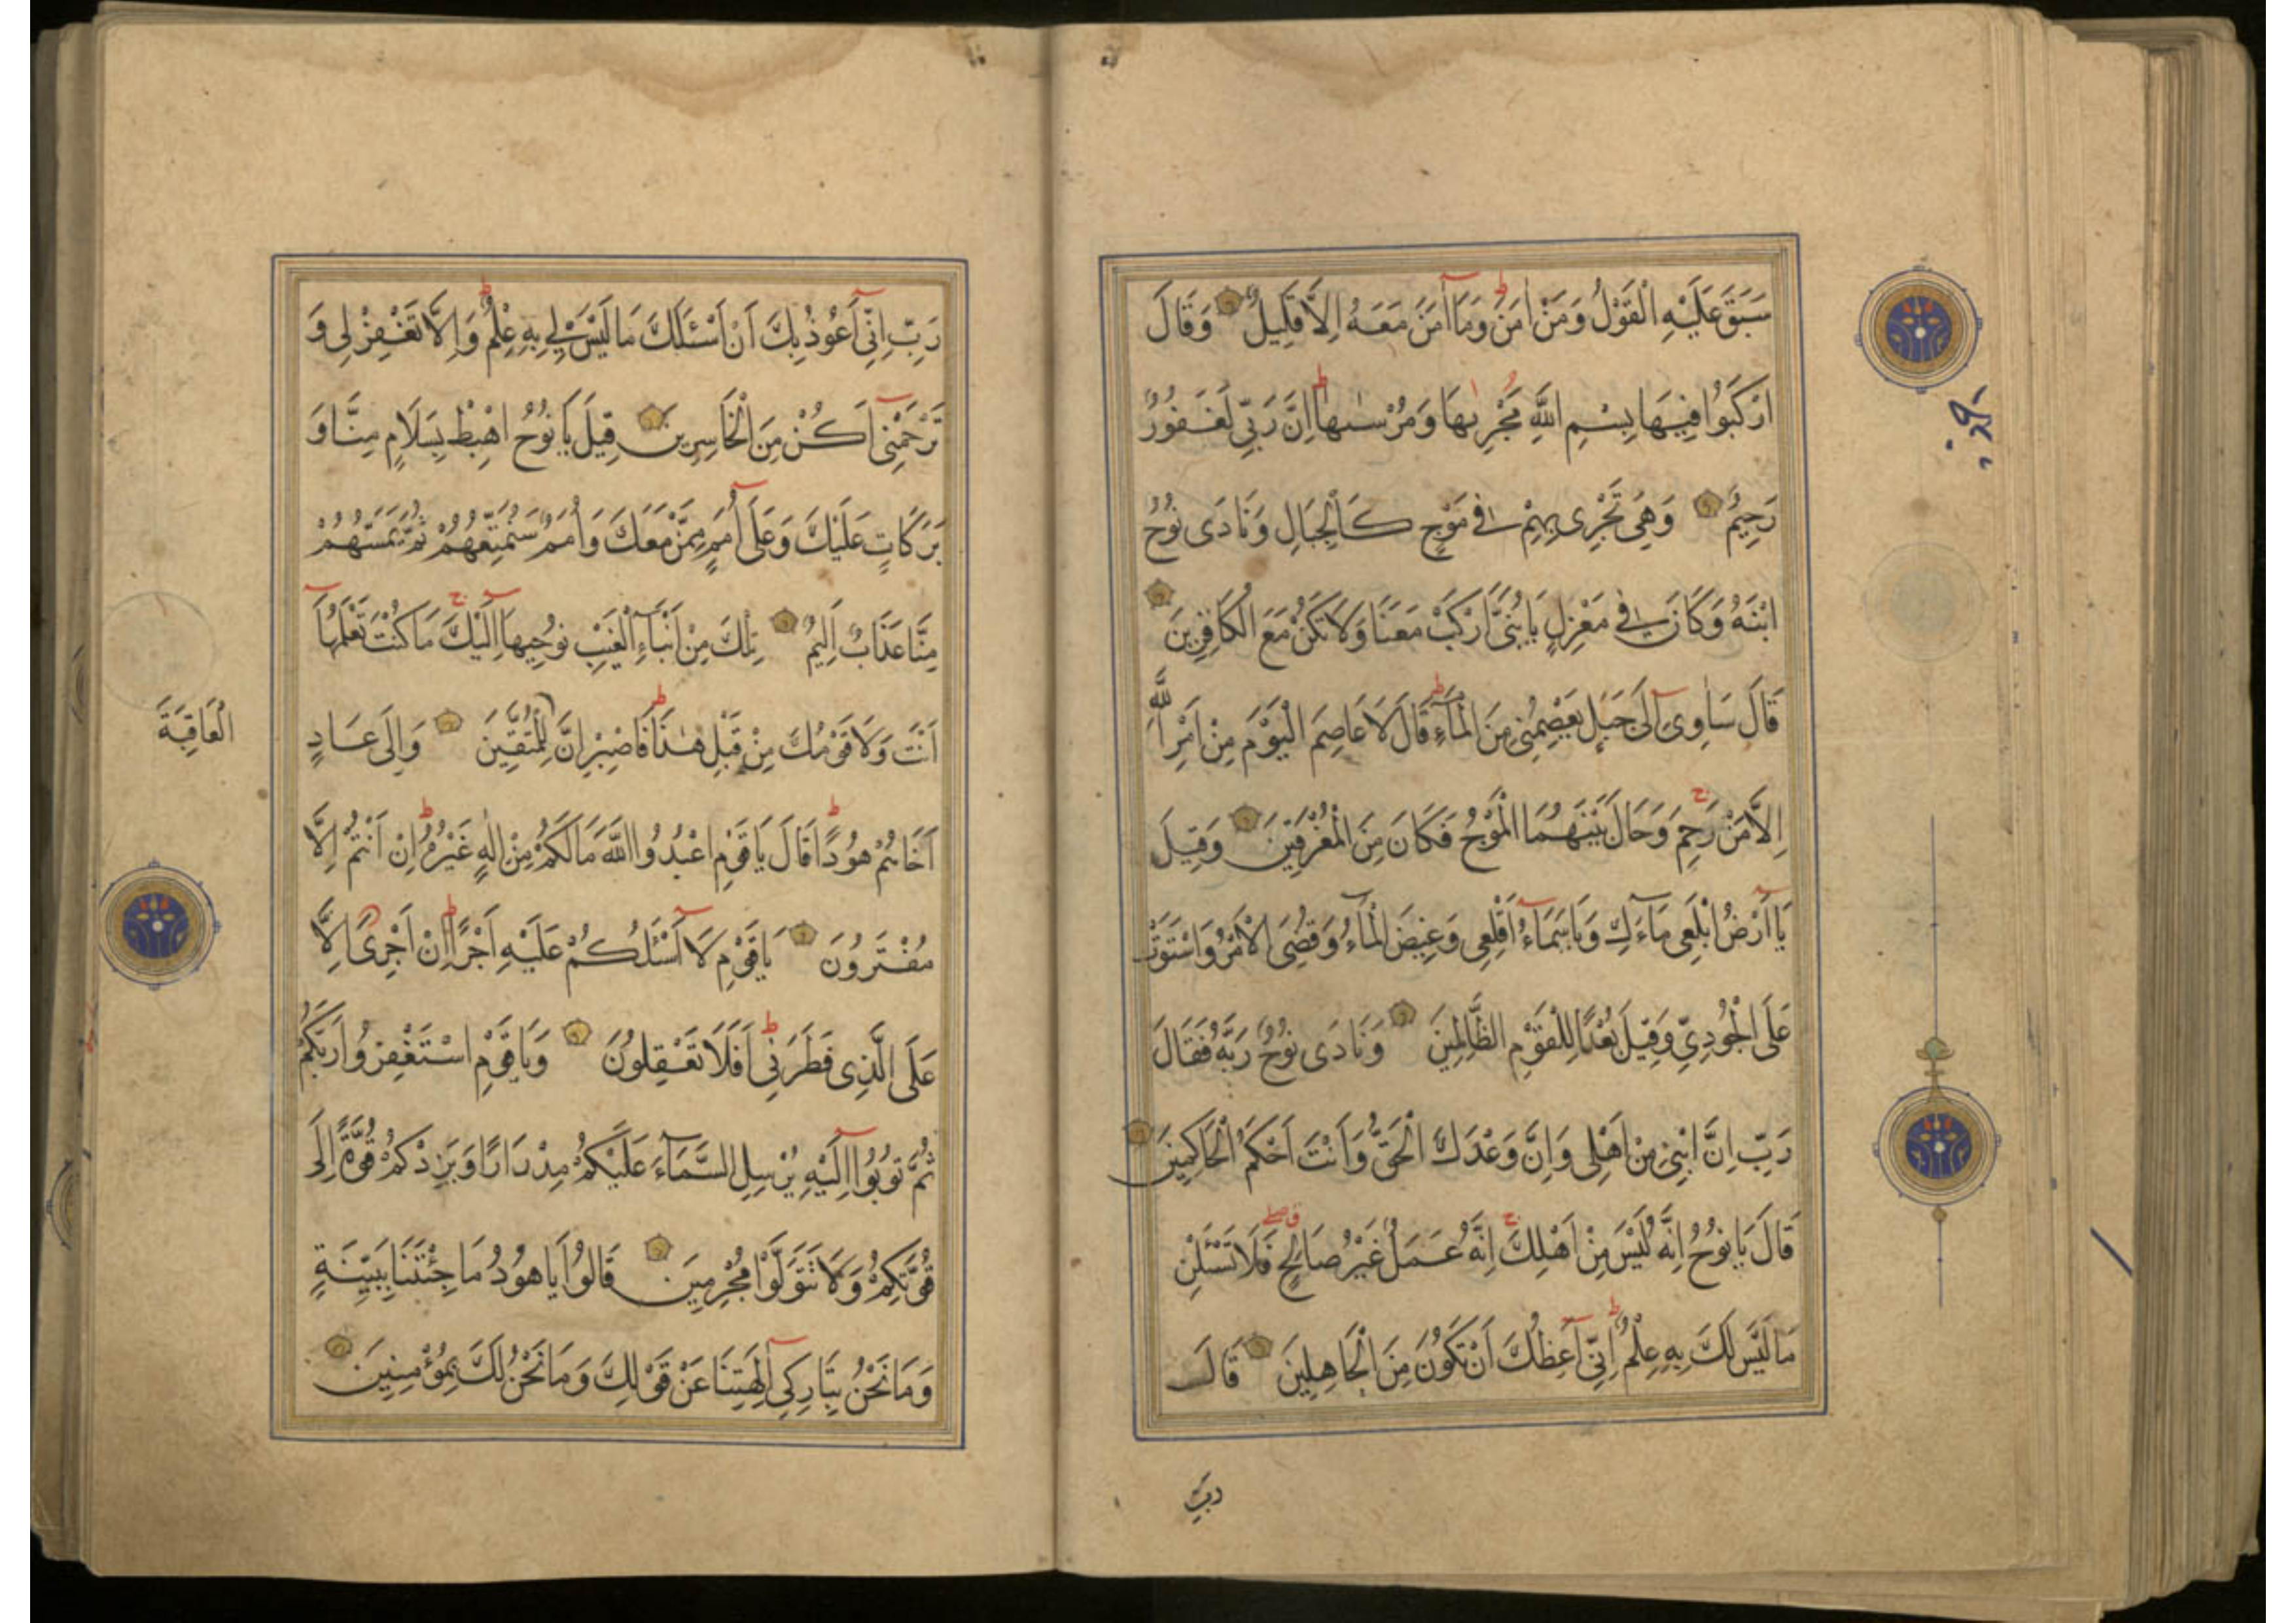 سَبَقَ عَلَيْهِ الْقَوْلُ وَمَنْ اٰمَنَ وَمَآ اٰمَنَ مَعَهُ اِلَّا قَلِيلٌ وَقَالَ
ارْكَبُوا فِيهَا بِسْمِ اللّٰهِ مَجْرٰىهَا وَمُرْسٰىهَا اِنَّ رَبِّى لَغَفُورٌ
رَحِيمٌ وَهِىَ تَجْرِى بِهِمْ فِى مَوْجٍ كَالْجِبَالِ وَنَادَى نُوحٌ
ابْنَهُ وَكَانَ فِى مَعْزِلٍ يَا بُنَىَّ ارْكَبْ مَعَنَا وَلَا تَكُنْ مَعَ الْكَافِرِينَ
قَالَ سَاٰوِى اِلَى جَبَلٍ يَعْصِمُنِى مِنَ الْمَاءِ قَالَ لَا عَاصِمَ الْيَوْمَ مِنْ اَمْرِ اللّٰهِ
اِلَّا مَنْ رَحِمَ وَحَالَ بَيْنَهُمَا الْمَوْجُ فَكَانَ مِنَ الْمُغْرَقِينَ وَقِيلَ
يَا اَرْضُ ابْلَعِى مَاءَكِ وَيَا سَمَاءُ اَقْلِعِى وَغِيضَ الْمَاءُ وَقُضِىَ الْاَمْرُ وَاسْتَوَتْ
عَلَى الْجُودِىِّ وَقِيلَ بُعْدًا لِلْقَوْمِ الظَّالِمِينَ وَنَادَى نُوحٌ رَبَّهُ فَقَالَ
رَبِّ اِنَّ ابْنِى مِنْ اَهْلِى وَاِنَّ وَعْدَكَ الْحَقُّ وَاَنْتَ اَحْكَمُ الْحَاكِمِينَ
قَالَ يَا نُوحُ اِنَّهُ لَيْسَ مِنْ اَهْلِكَ اِنَّهُ عَمَلٌ غَيْرُ صَالِحٍ فَلَا تَسْئَلْنِ
مَا لَيْسَ لَكَ بِهِ عِلْمٌ اِنِّى اَعِظُكَ اَنْ تَكُونَ مِنَ الْجَاهِلِينَ قَالَ
رَبِّ
رَبِّ اِنِّى اَعُوذُ بِكَ اَنْ اَسْئَلَكَ مَا لَيْسَ لِى بِهِ عِلْمٌ وَاِلَّا تَغْفِرْ لِى وَ
تَرْحَمْنِى اَكُنْ مِنَ الْخَاسِرِينَ قِيلَ يَا نُوحُ اهْبِطْ بِسَلَامٍ مِنَّا وَ
بَرَكَاتٍ عَلَيْكَ وَعَلَى اُمَمٍ مِمَّنْ مَعَكَ وَاُمَمٌ سَنُمَتِّعُهُمْ ثُمَّ يَمَسُّهُمْ
مِنَّا عَذَابٌ اَلِيمٌ تِلْكَ مِنْ اَنْبَاءِ الْغَيْبِ نُوحِيهَا اِلَيْكَ مَا كُنْتَ تَعْلَمُهَا
اَنْتَ وَلَا قَوْمُكَ مِنْ قَبْلِ هٰذَا فَاصْبِرْ اِنَّ لِلْمُتَّقِينَ وَاِلَى عَادٍ
الْعَاقِبَةَ
اَخَاهُمْ هُودًا قَالَ يَا قَوْمِ اعْبُدُوا اللّٰهَ مَا لَكُمْ مِنْ اِلٰهٍ غَيْرُهُ اِنْ اَنْتُمْ اِلَّا
مُفْتَرُونَ يَا قَوْمِ لَا اَسْئَلُكُمْ عَلَيْهِ اَجْرًا اِنْ اَجْرِىَ اِلَّا
عَلَى الَّذِى فَطَرَنِى اَفَلَا تَعْقِلُونَ وَيَا قَوْمِ اسْتَغْفِرُوا رَبَّكُمْ
ثُمَّ تُوبُوا اِلَيْهِ يُرْسِلِ السَّمَاءَ عَلَيْكُمْ مِدْرَارًا وَيَزِدْكُمْ قُوَّةً اِلَى
قُوَّتِكُمْ وَلَا تَتَوَلَّوْا مُجْرِمِينَ قَالُوا يَا هُودُ مَا جِئْتَنَا بِبَيِّنَةٍ
وَمَا نَحْنُ بِتَارِكِى اٰلِهَتِنَا عَنْ قَوْلِكَ وَمَا نَحْنُ لَكَ بِمُؤْمِنِينَ